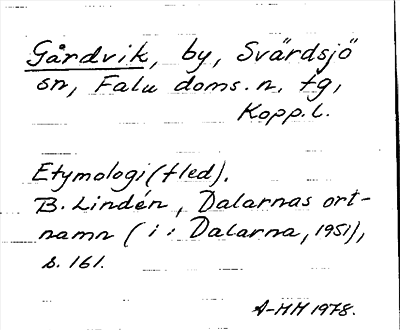 Gårdvik, by, Svärdsjö
sn, Falu doms.n. tg,
Kopp.l.
Etymologi (fled).
B. Lindén, Dalarnas ort-
namn (i: Dalarna, 1951),
s. 161.
A-HH 1978.